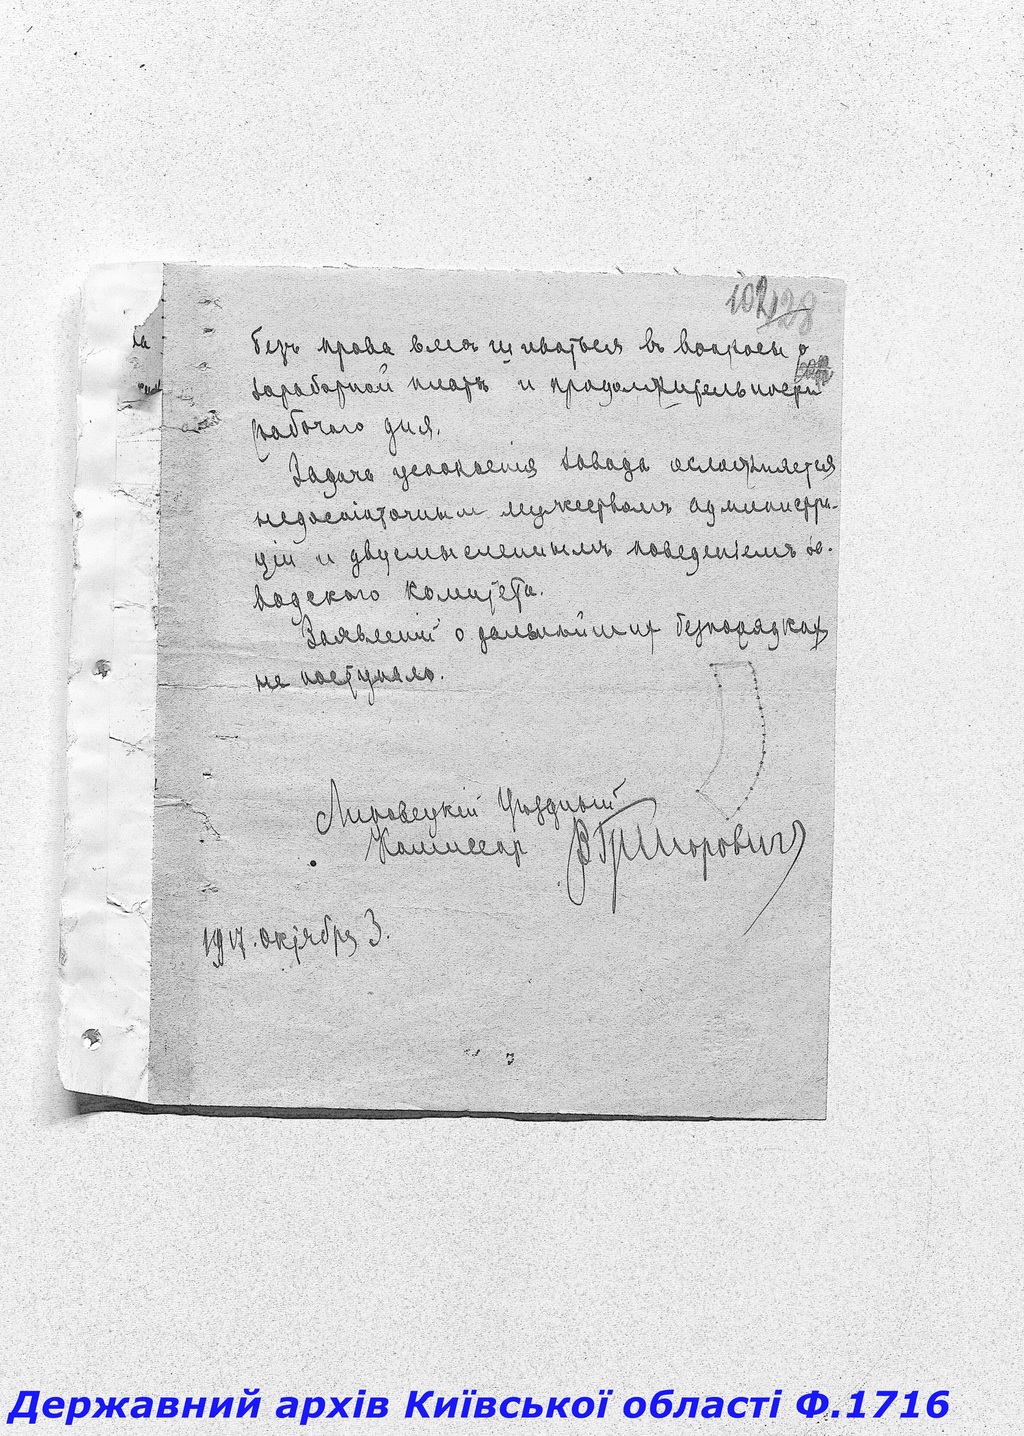 102 128
безъ права вмешиваться въ вопросы о
заработной платѣ и продолжительности
рабочаго дня.
Задача успокоенія завода осложняется
недостаточным мужествомъ администра-
ціи и двусмысленнымъ поведеніемъ за-
водского комитета.
Заявленій о дальнѣйших безпорядках
не поступало.
Липовецкій Уѣздный
Комиссар
1917. октября 3.
Державний архів Київської області Ф.1716